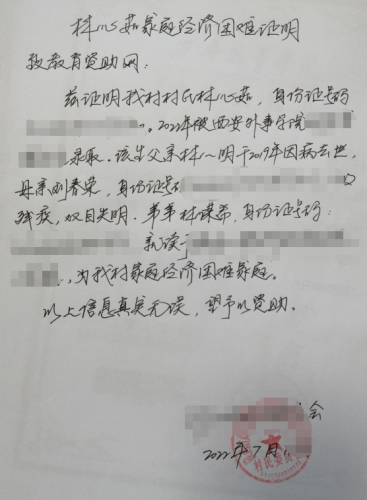 林心茹家庭经济困难证明
致教育资助网:
兹证明我村村民林心茹,身份证号码
。2022年被西安外事学院
录取。该生父亲林一明于2019年因病去世,
母亲刘春荣,身份证号
残疾,双目失明。弟弟林谋希,身份证号码:
就读于
,为我村家庭经济困难家庭。
以上信息真实无误,望予以资助。
会
2022年7月
村民委员